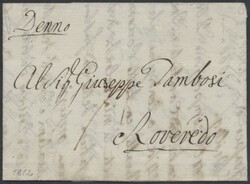 Denno
Al Sig. Giuseppe Tambosi
Roveredo
1812